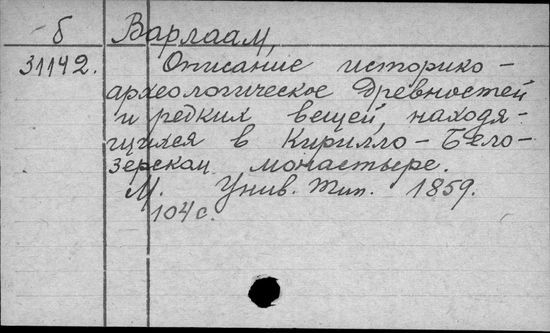 б Варлаам,
31142. Описание историко-
археологическое древностей
и редких вещей, находя-
щихся в Кирилло-Бело-
зерском монастыре.
М. Унив. тип. 1859.
104 с.